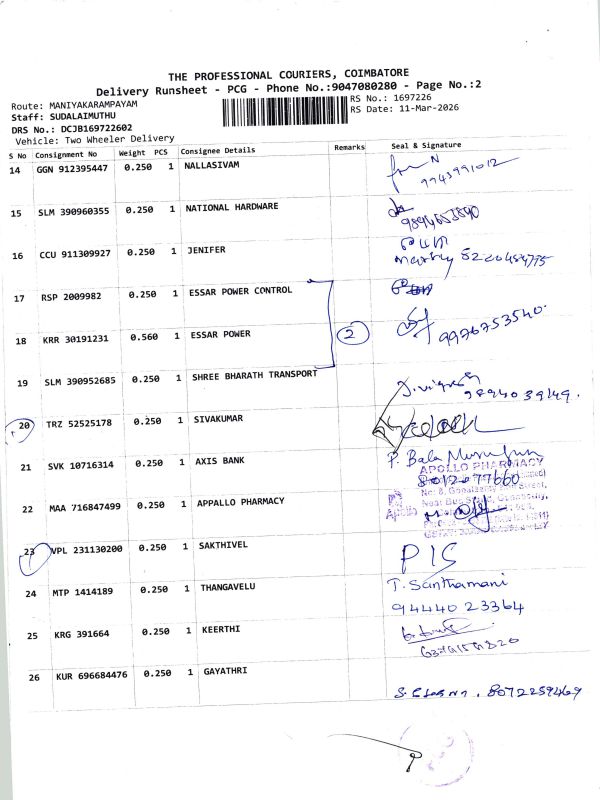 THE PROFESSIONAL COURIERS, COIMBATORE
Delivery Runsheet - PCG - Phone No.:9047080280 - Page No.:2
Route: MANIYAKARAMPAYAM
RS No.: 1697226
Staff: SUDALAIMUTHU
RS Date: 11-Mar-2026
DRS No.: DCJB169722602
Vehicle: Two Wheeler Delivery
S No Consignment No Weight PCS Consignee Details Remarks Seal & Signature
14 GGN 912395447 0.250 1 NALLASIVAM
9943991012
15 SLM 390960355 0.250 1 NATIONAL HARDWARE
9894653890
16 CCU 911309927 0.250 1 JENIFER
17 RSP 2009982 0.250 1 ESSAR POWER CONTROL
18 KRR 30191231 0.560 1 ESSAR POWER 2 9976753540
19 SLM 390952685 0.250 1 SHREE BHARATH TRANSPORT
9894039149.
20 TRZ 52525178 0.250 1 SIVAKUMAR
21 SVK 10716314 0.250 1 AXIS BANK P. Bala
APOLLO PHARMACY
8012077660
22 MAA 716847499 0.250 1 APPALLO PHARMACY Apollo
23 VPL 231130200 0.250 1 SAKTHIVEL P/S
24 MTP 1414189 0.250 1 THANGAVELU T. Santhamani
94440 23364
25 KRG 391664 0.250 1 KEERTHI
26 KUR 696684476 0.250 1 GAYATHRI
8072259469